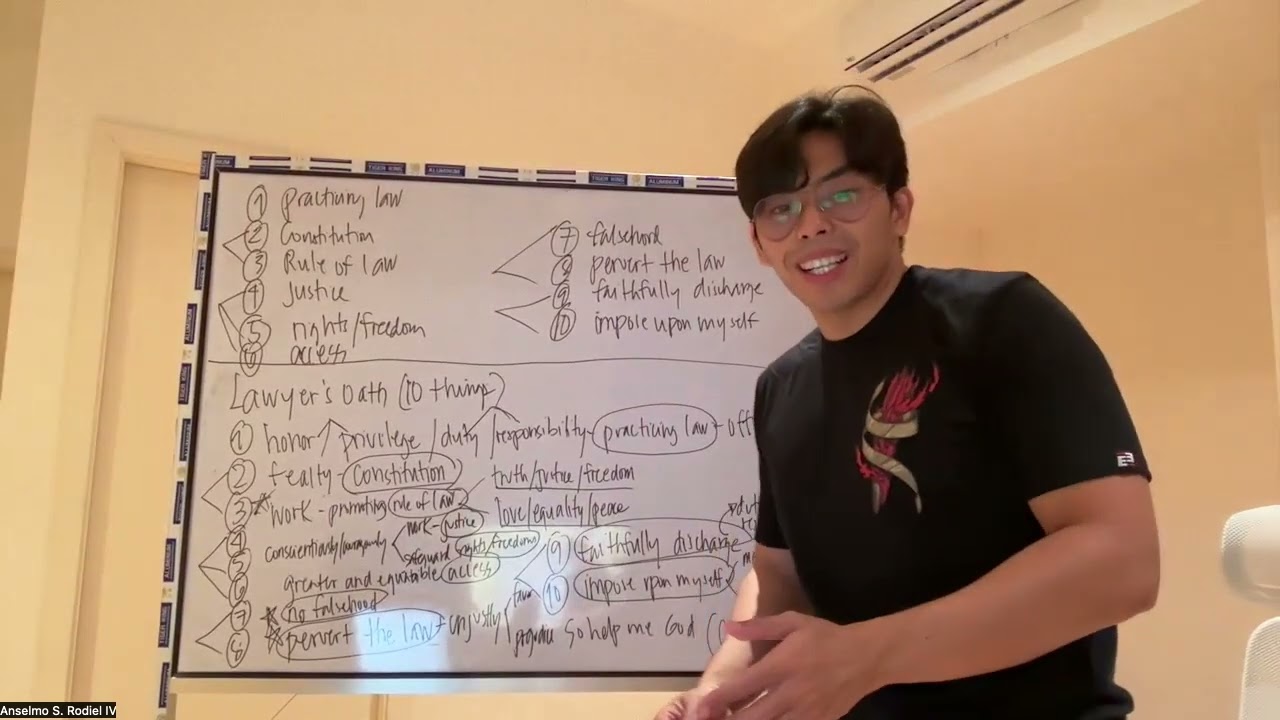 TIGER KING ALUMINUM
① practicing law
② Constitution
③ Rule of law
④ Justice
⑤ rights/freedom
⑥ access
⑦ falsehood
⑧ pervert the law
⑨ faithfully discharge
⑩ impose upon myself
Lawyer's Oath (10 things)
① honor / privilege / duty / responsibility - practicing law -
② fealty - Constitution truth/justice/freedom
③ work - promoting rule of law love/equality/peace
④ conscientiously/courageously work - justice
⑤ safeguard rights/freedoms
⑥ greater and equitable access
⑦ no falsehood
⑧ pervert the law unjustly favor prejudice
⑨ faithfully discharge
⑩ impose upon myself
So help me God
Anselmo S. Rodiel IV